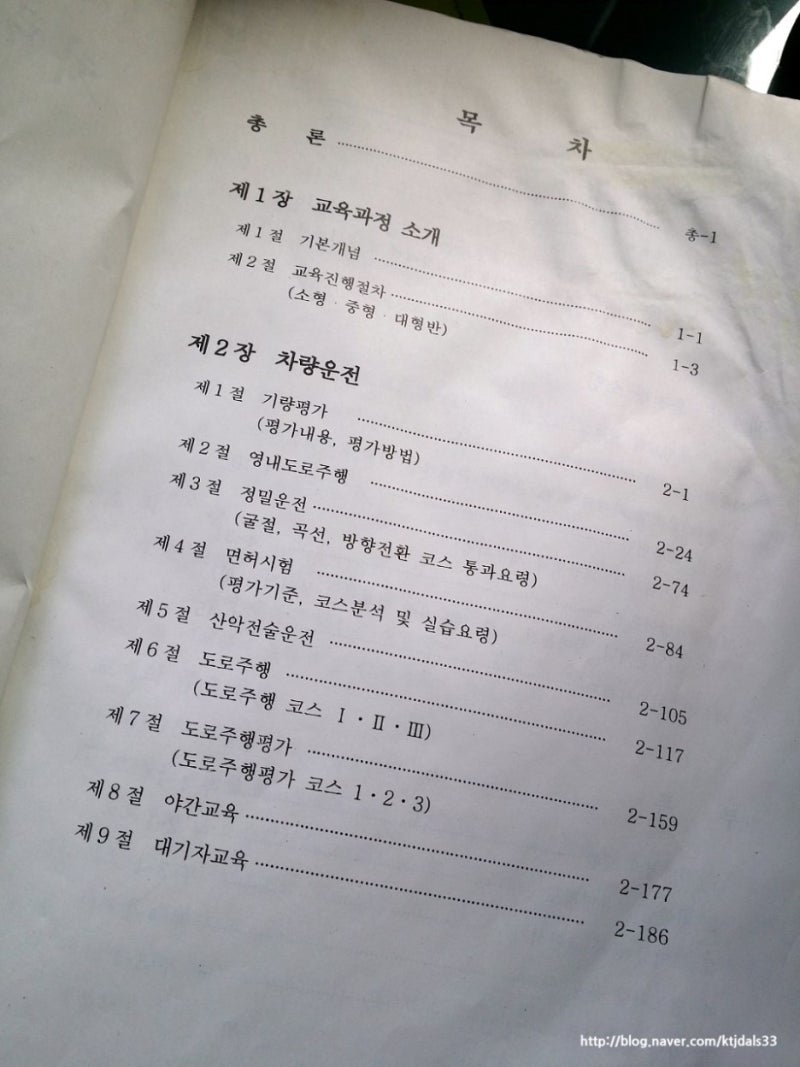 목 차
총 론 ........................ 총-1
제1장 교육과정 소개
제1절 기본개념 ........................ 1-1
제2절 교육진행절차 ........................ 1-3
(소형 · 중형 · 대형반)
제2장 차량운전
제1절 기량평가 ........................ 2-1
(평가내용, 평가방법)
제2절 영내도로주행 ........................ 2-24
제3절 정밀운전 ........................ 2-74
(굴절, 곡선, 방향전환 코스 통과요령)
제4절 면허시험 ........................ 2-84
(평가기준, 코스분석 및 실습요령)
제5절 산악전술운전 ........................ 2-105
제6절 도로주행 ........................ 2-117
(도로주행 코스 Ⅰ·Ⅱ·Ⅲ)
제7절 도로주행평가 ........................ 2-159
(도로주행평가 코스 1·2·3)
제8절 야간교육 ........................ 2-177
제9절 대기자교육 ........................ 2-186
http://blog.naver.com/ktjdals33